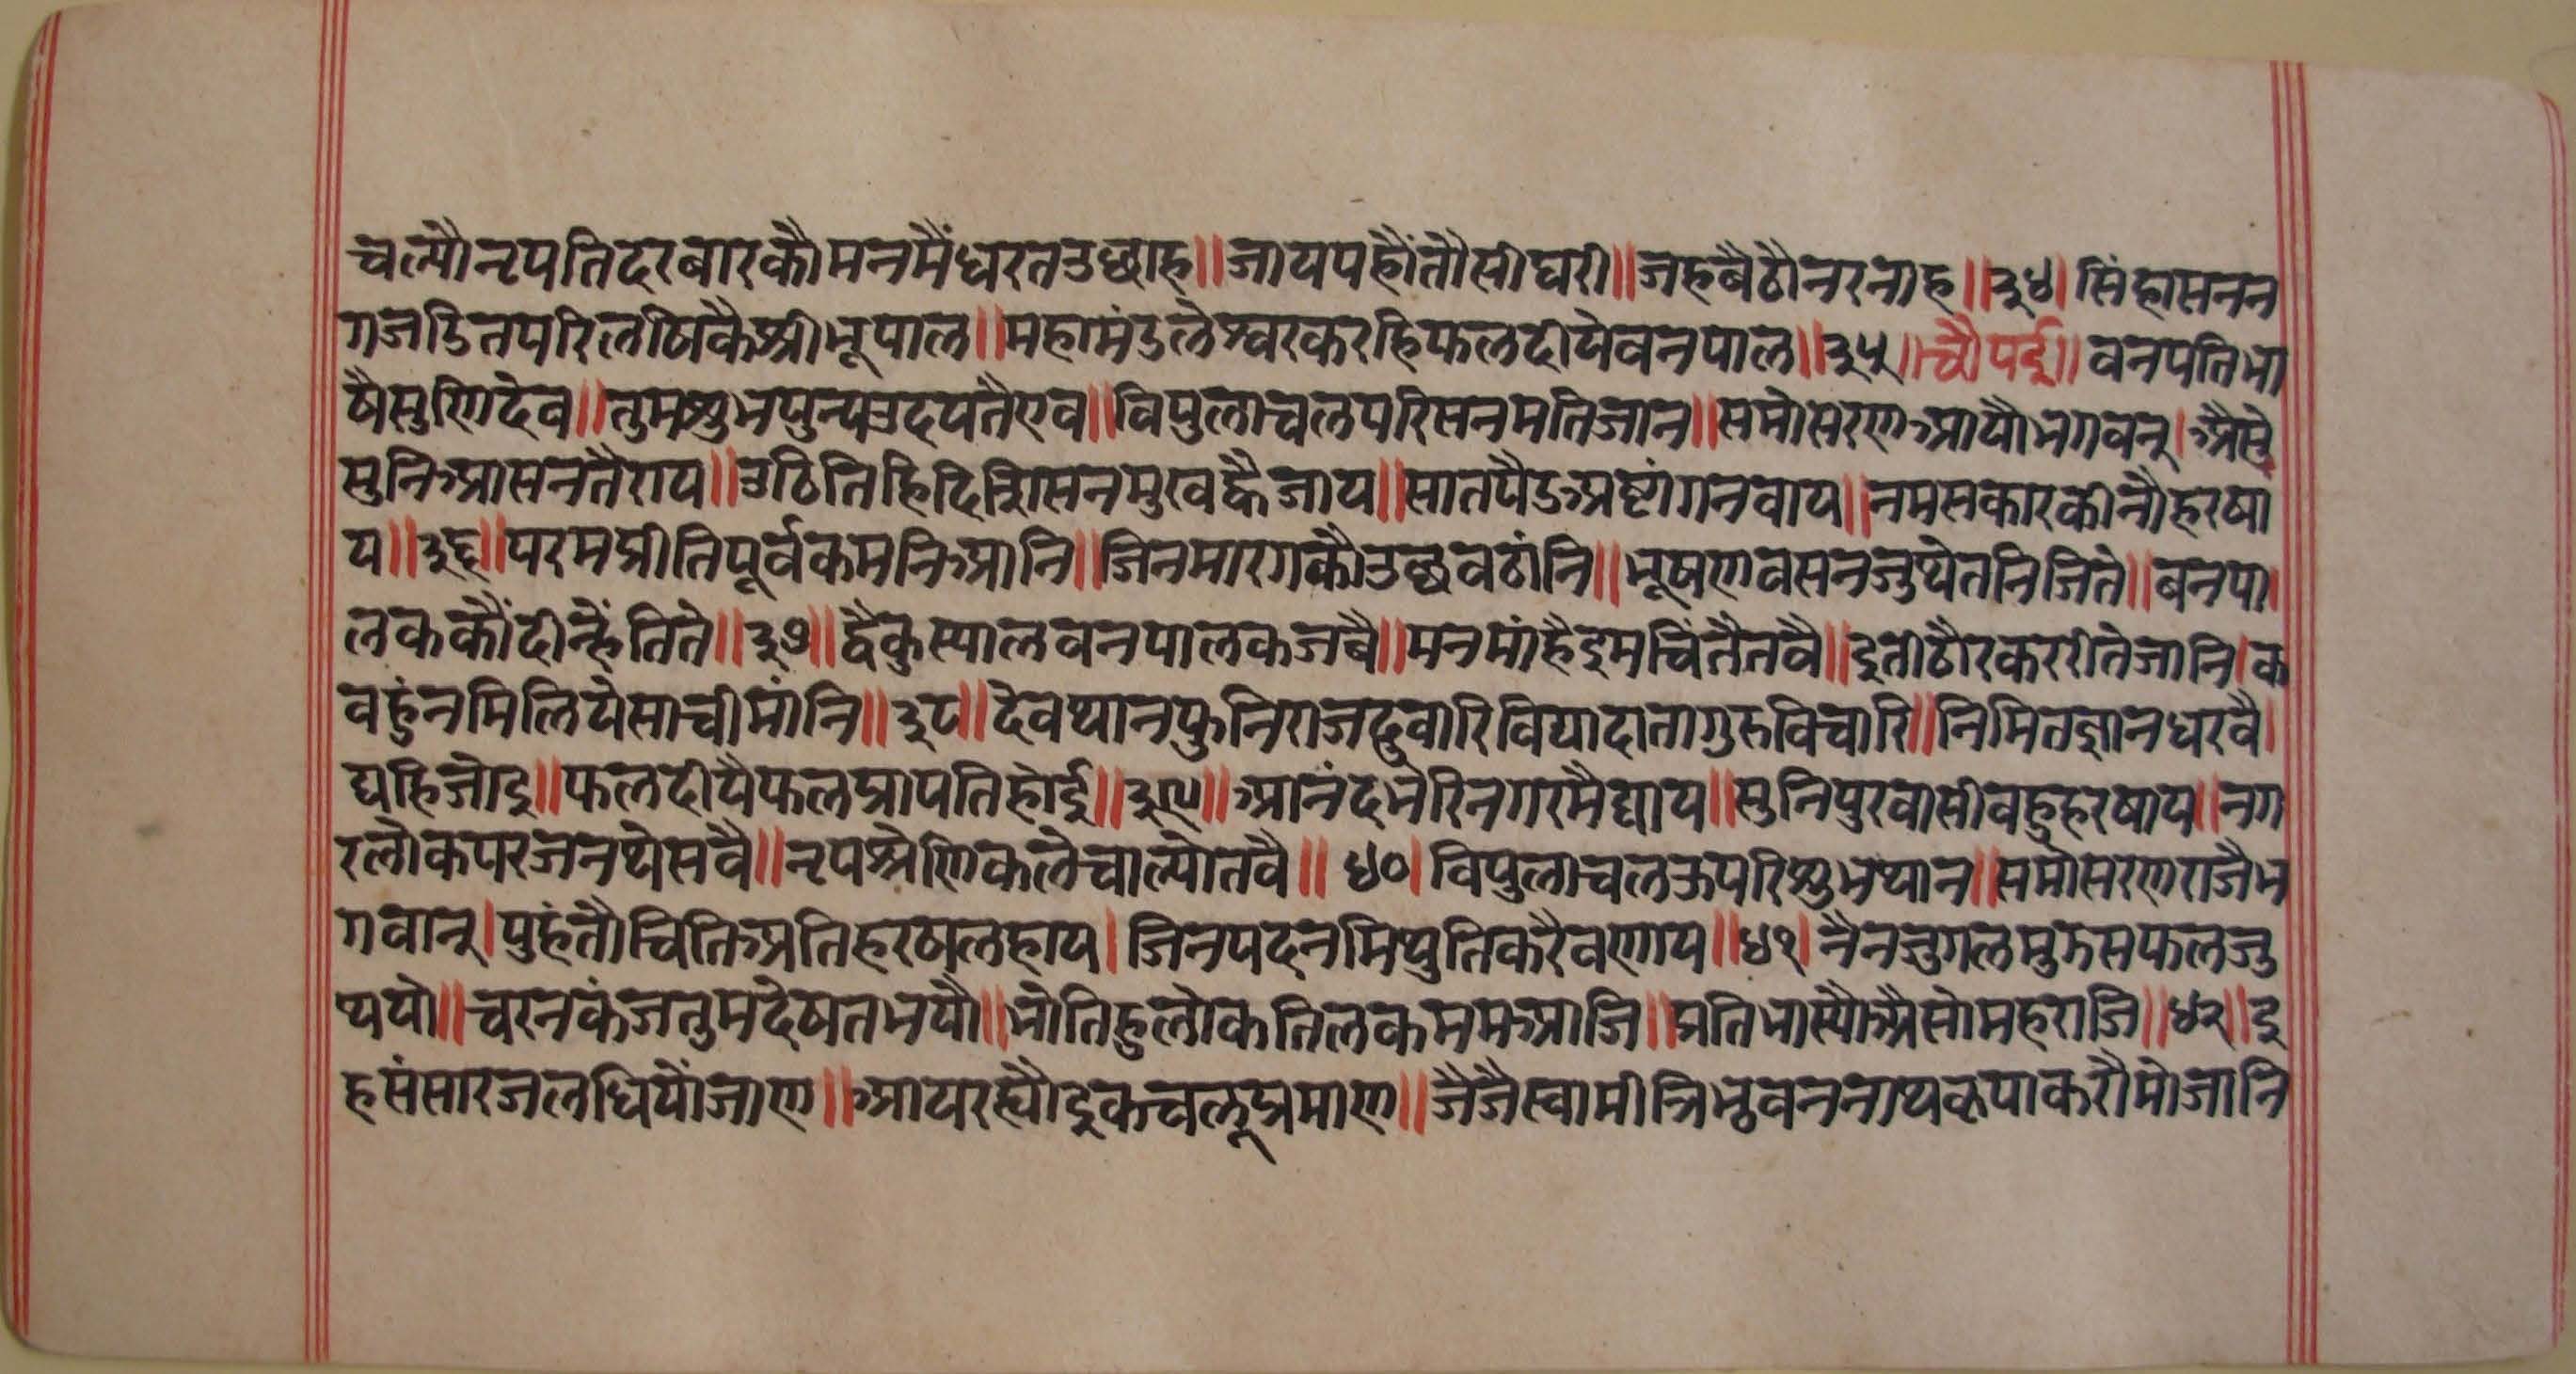 चल्यौनृपतिदरबारकौमनमैंधरतउछाह॥जायपहौंतौसीघरी॥जहबैठौनरनाह॥३४।सिंहासनन
गजडितपरिलषिकैश्रीभूपाल॥महामंडलेश्वरकरहिफलदीयेवनपाल॥३५॥चौपई॥वनपतिभा
षैसुणिदेव॥तुमशुभपुन्यउदयतैएव॥विपुलाचलपरिसनमतिजान॥समोसरणआयौभगवन्।अैसे
सुनिआसनतैराय॥उठितिहिदिशिसनमुखह्वैजाय॥सातपैडअष्टांगनवाय॥नमसकारकीनौहरषा
य॥३६॥परमप्रीतिपूर्वकमनिआनि॥जिनमारगकौउछवठांनि॥भूषणवसनजुथेतनिजिते॥बनपा
लककौंदीन्हैंतिते॥३७॥द्वैकुस्यालवनपालकजबै॥मनमांहैइमचिंतैतवै॥इतीठौरकररीतेजानि।क
वहुंनमिलियेसाचीमांनि॥३८॥देवथानफुनिराजदुवारिवियादातागुरुविचारि॥निमितज्ञानधरवै
द्यहिजोइ॥फलदीयैफलप्रापतिहोई॥३९॥आनंदभेरिनगरमैद्याय॥सुनिपुरवासीवहुहरषाय॥नग
रलोकपरजनथेसवै॥नृपश्रेणिकलेचाल्योतवै॥४०।विपुलाचलऊपरिशुभथान॥समोसरणराजैभ
गवान्।पुहंतौचितिअतिहरषालहाय।जिनपदनमिथुतिकरैवणाय॥४१।नैनजुगलमुझसफलजु
थयो॥चरनकंजतुमदेषतभयौ॥भोतिहुलोकतिलकममआजि॥प्रतिभास्यौअैसोमहराजि॥४२॥इ
हसंसारजलधियौंजाण॥आयरह्यौइकचलूप्रमाण॥जैजैस्वामीत्रिभुवननाथकृपाकरौमोजानि